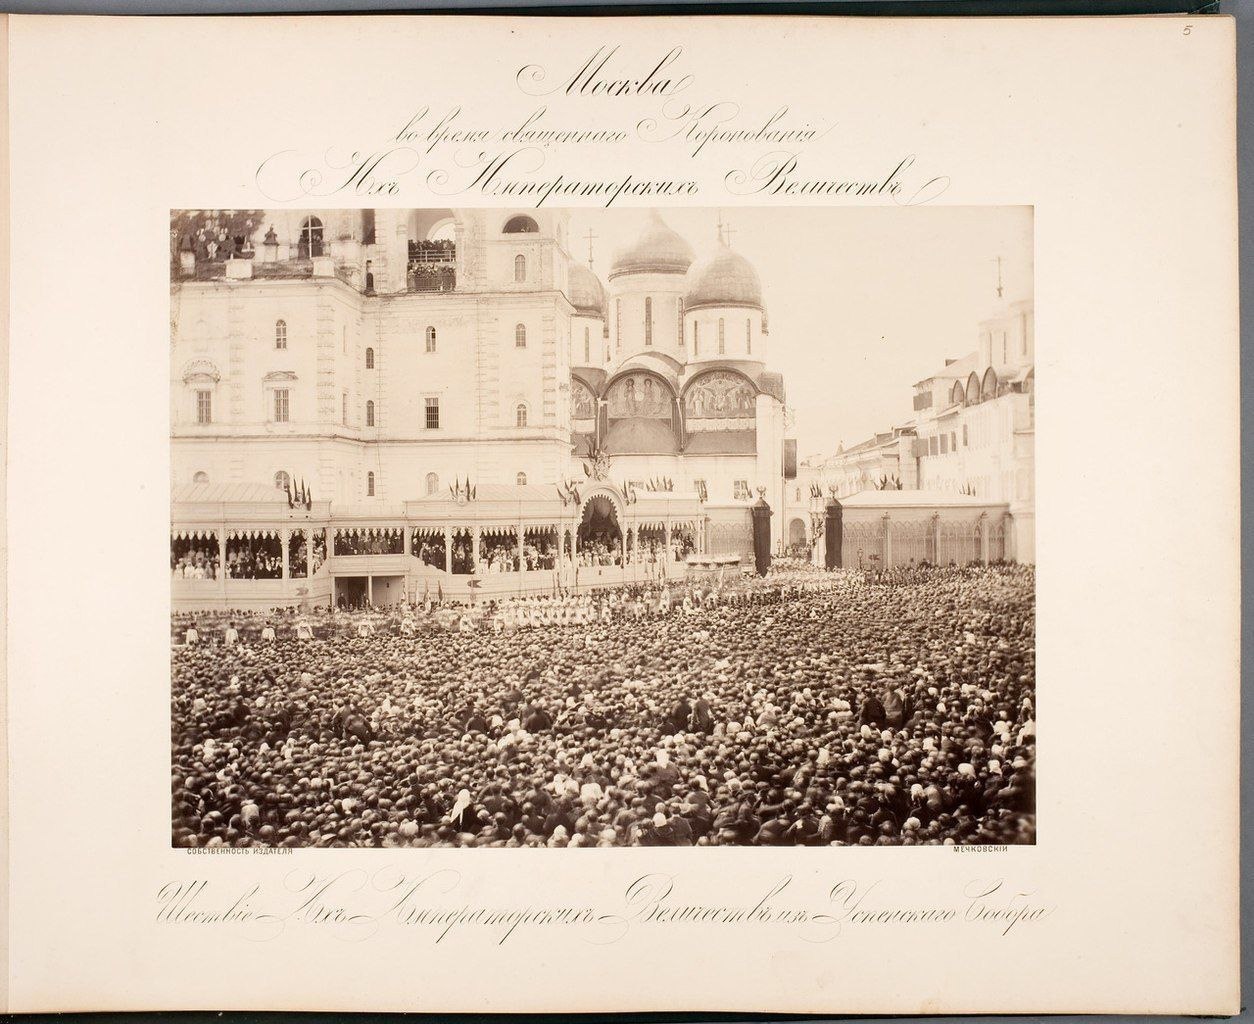 5
Москва
во время священнаго Коронованія
Ихъ Императорскихъ Величествъ
СОБСТВЕННОСТЬ ИЗДАТЕЛЯ
МЕЧКОВСКІЙ
Шествіе Ихъ Императорскихъ Величествъ изъ Успенскаго Собора